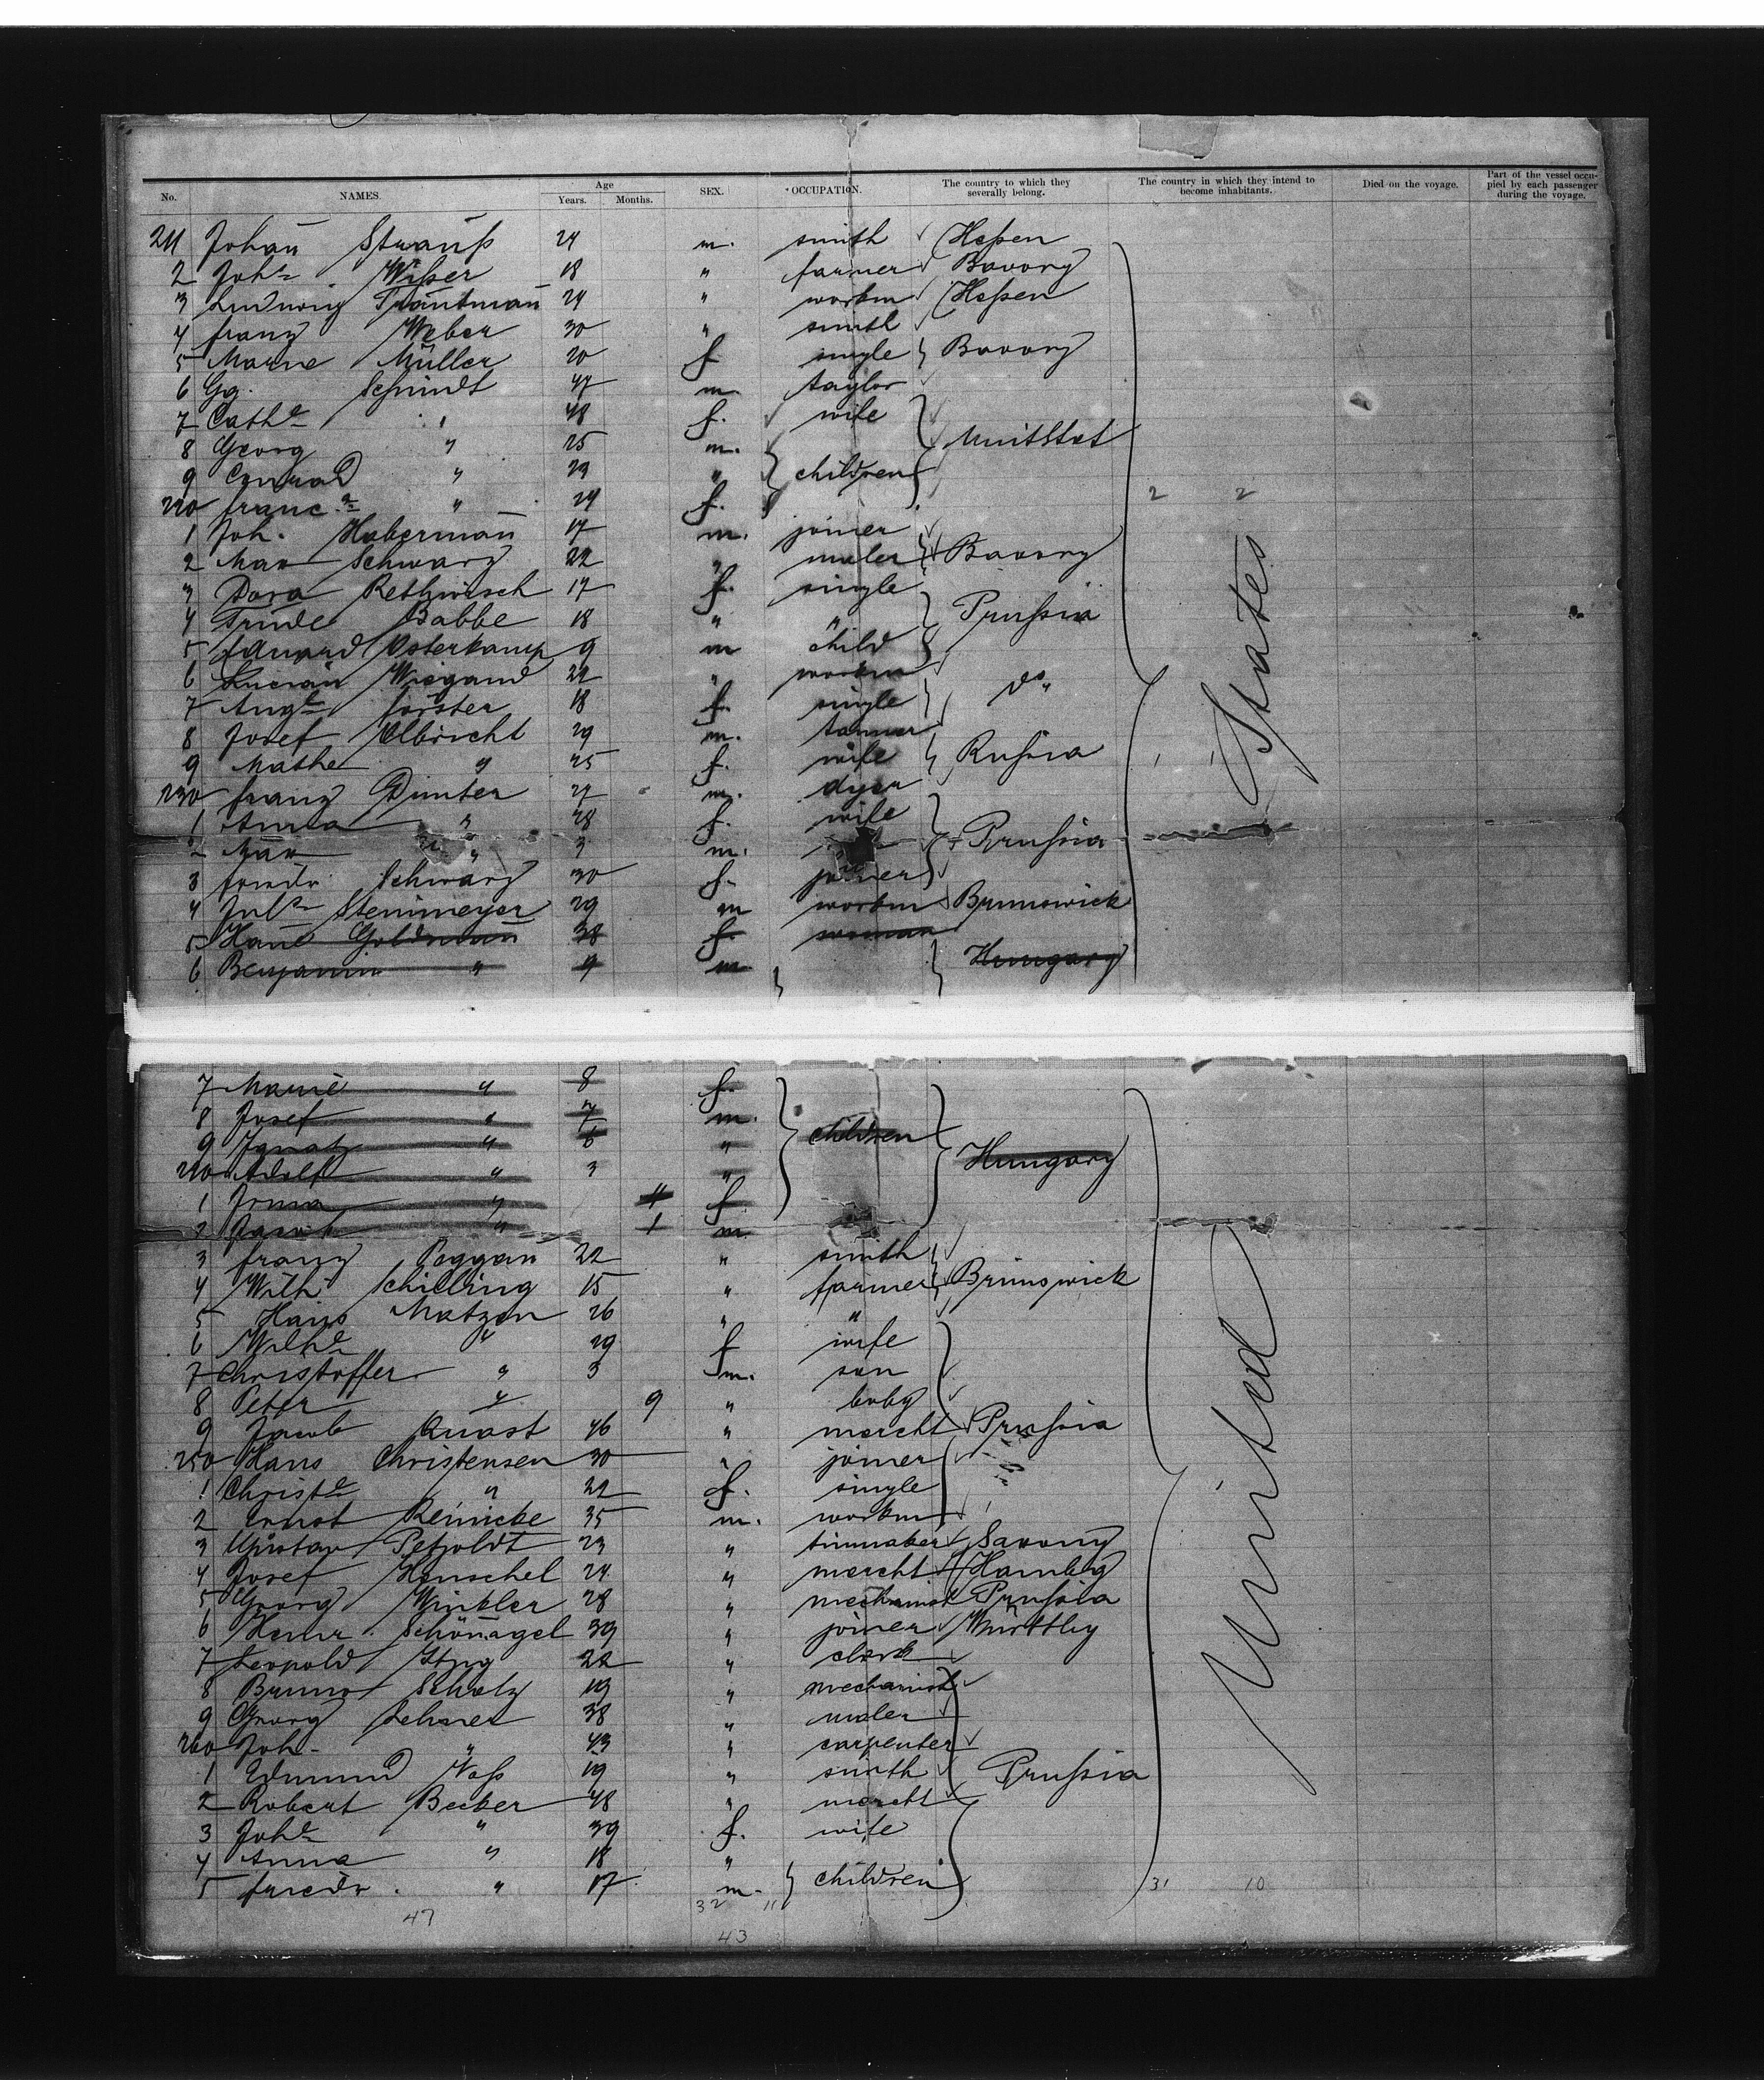 No. NAMES. Age Years. Months. SEX. OCCUPATION. The country to which they severally belong. The country in which they intend to become inhabitants. Died on the voyage. Part of the vessel occupied by each passenger during the voyage.
211 Johan̄ Strauſs 24 m. smith Heſsen
2 Johs Wiſser 18 " farmer Bavary
3 Ludwig Trautman̄ 24 " workm Heſsen
4 franz Weber 30 " smith
5 Marie Müller 20 f single Bavary
6 Gg. Schmidt 47 m. taylor
7 Cathe " 48 f. wife
8 Georg " 25 m. UnitStat
9 Conrad " 23 " children
220 franc.a " 24 f. 2 2
1 Joh. Haberman̄ 17 m. joiner
2 Max Schwarz 22 " maler Bavary
3 Dora Rethwisch 17 f. single
4 Trude Babbe 18 " " Pruſsia
5 Eduard Osterkamp 9 m child
6 Lucian Wiegand 22 " workm
7 Auge förster 18 f. single do "
8 Josef Olbricht 29 m. tanner
9 Mathe " 25 f. wife Ruſsia
230 franz Dimter 27 m. dyer
1 Anna " 28 f. wife
2 Max " 3 m. Pruſsia
3 friedr Schwarz 30 f. joiner
4 Juls Steinmeyer 29 m workm Brunswick
5 Hane Goldman̄ 38 f. woman
6 Benjamin " 9 m Hungary
7 Marie " 8 f.
8 Josef " 7 m.
9 Ignatz " 6 " children
240 Adolf " 3 " Hungary
1 Irma " 4 f
2 Jacob " 1 m.
3 franz Poggan 22 " smith
4 Wilh Schilling 15 " farmer Brunswick
5 Hans Matzen 26 " "
6 Wilhe " 29 f wife
7 Christoffer " 3 m. son
8 Peter " 9 " baby
9 Jacob Quast 46 " mercht Pruſsia
250 Hans Christensen 30 " joiner
1 Christe " 22 f. single
2 Ernst Reinicke 35 m. workm
3 Gustav Petzoldt 23 " tinmaker Saxony
4 Josef Henschel 24 " mercht Hambg
5 Georg Winkler 28 " mechanist Pruſsia
6 Heinr. Schönnagel 39 " joiner Württbg
7 Leopold 22 " clerk
8 Bruno Scholz 19 " mechanist
9 Georg Lehner 38 " maler
260 Joh. " 43 " carpenter
1 Edmund Voſs 19 " smith Pruſsia
2 Robert Becker 48 " mercht
3 Johe " 39 f. wife
4 Anna " 18 "
5 friedr. " 17 m. children 31 10
47 32 11
43
United States